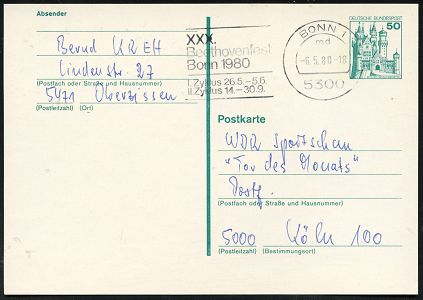 Absender
Bernd KREH
Lindenstr. 27
(Postfach oder Straße und Hausnummer)
5471
(Postleitzahl) (Ort)
XXX.
Beethovenfest
Bonn 1980
I Zyklus 26.5.-5.6.
II Zyklus 14.-30.9.
BONN 1
md
-6.5.80.-18
5300
DEUTSCHE BUNDESPOST
50
Postkarte
WDR Sportschau
"Tor des Monats"
Postf.
(Postfach oder Straße und Hausnummer)
5000 Köln 100
(Postleitzahl) (Bestimmungsort)